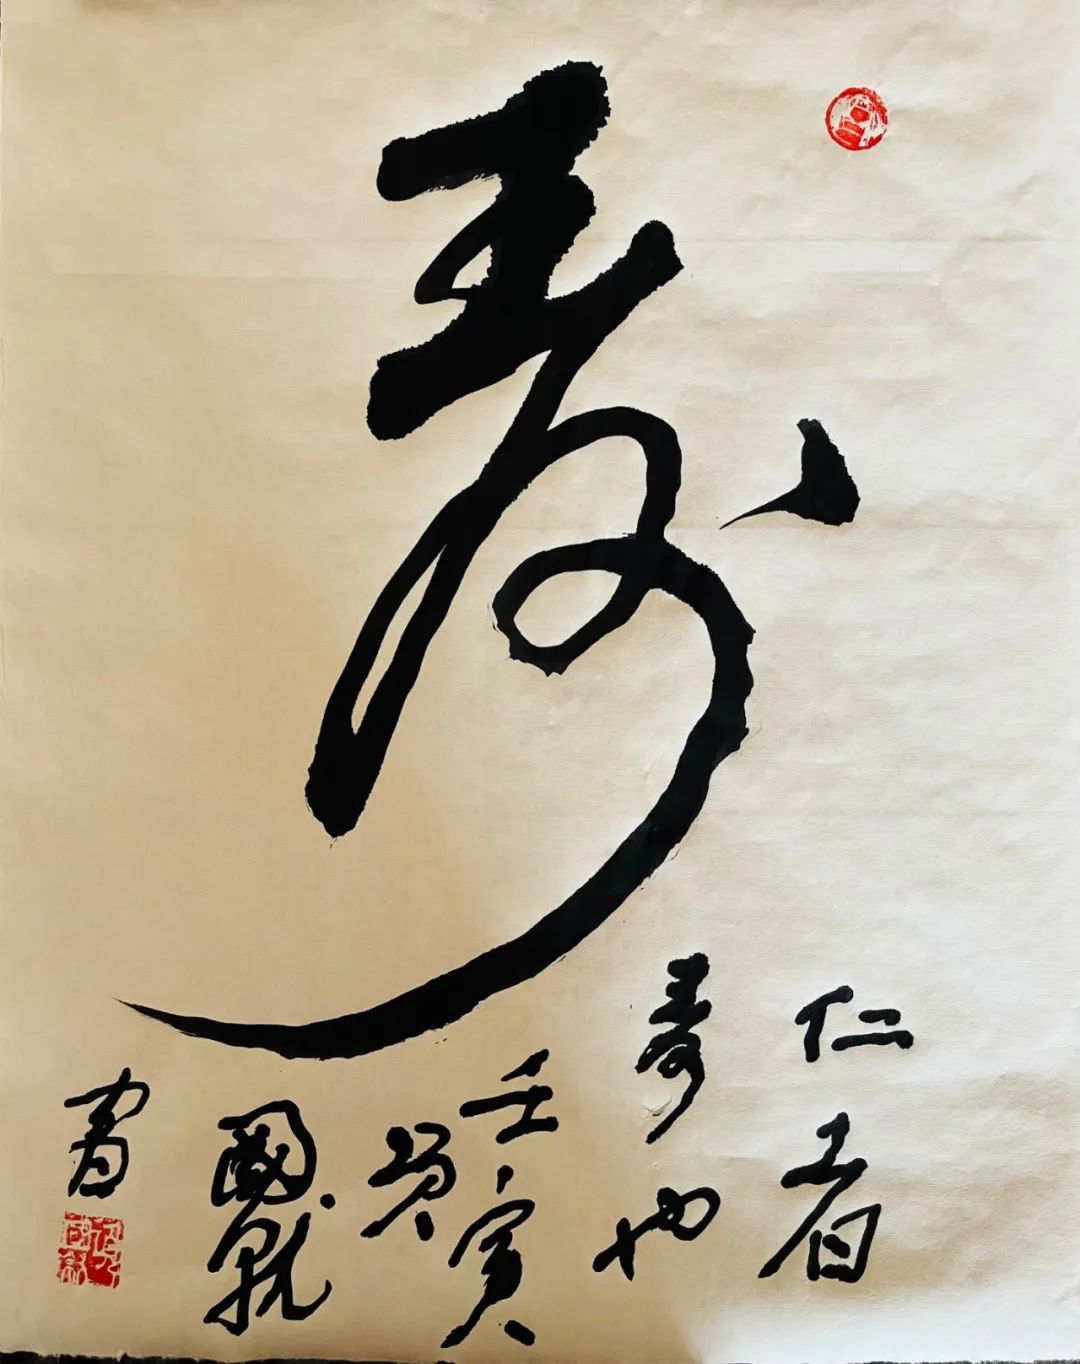 寿
仁者
寿也
壬寅
國
書